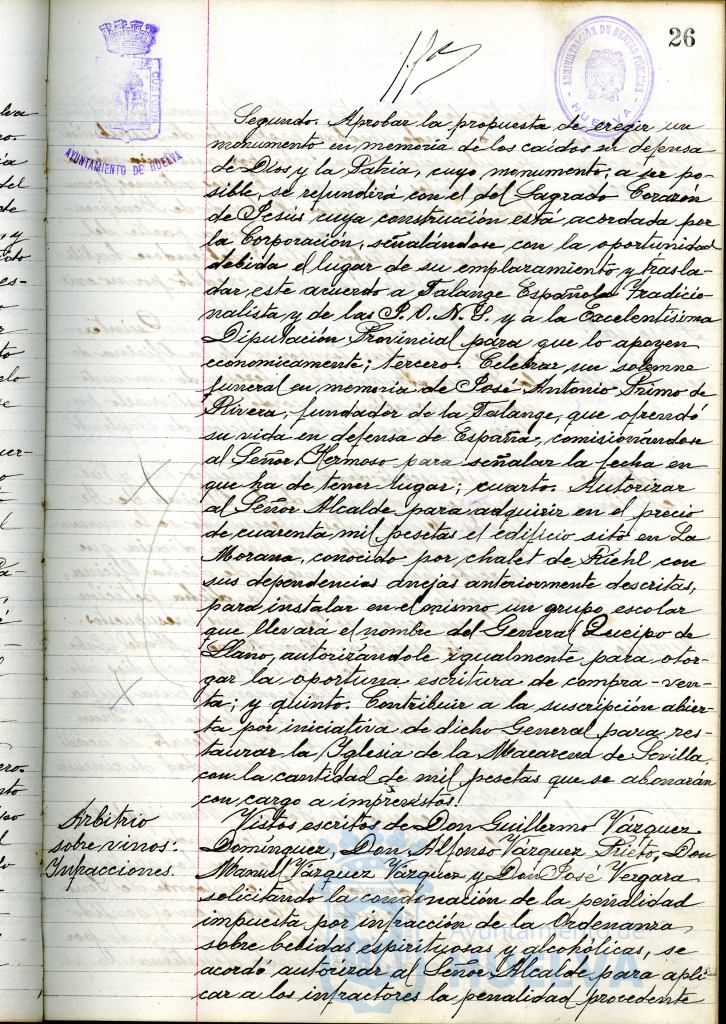 26
ADMINISTRACIÓN DE RENTAS PÚBLICAS
HUELVA
AYUNTAMIENTO DE HUELVA
Segundo. Aprobar la propuesta de eregir un
monumento en memoria de los caídos en defensa
de Dios y la Patria, cuyo monumento, a ser po-
sible, se refundirá con el del Sagrado Corazón
de Jesús cuya construcción está acordada por
la Corporación, señalándose con la oportunidad
debida el lugar de su emplazamiento y trasla-
dar este acuerdo a Falange Española Tradicio-
nalista y de las J.O.N.S. y a la Excelentísima
Diputación Provincial para que lo apoyen
economicamente; tercero. Celebrar un solemne
funeral en memoria de José Antonio Primo de
Rivera, fundador de la Falange, que ofrendó
su vida en defensa de España, comisionándose
al Señor Hermoso para señalar la fecha en
que ha de tener lugar; cuarto. Autorizar
al Señor Alcalde para adquirir en el precio
de cuarenta mil pesetas el edificio sito en La
Morana, conocido por chalet de Riehl con
sus dependencias anejas anteriormente descritas,
para instalar en el mismo un grupo escolar
que llevará el nombre del General Queipo de
Llano, autorizándole igualmente para otor-
gar la oportuna escritura de compra-ven-
ta; y quinto. Contribuir a la suscripción abier-
ta por iniciativa de dicho General para res-
taurar la Iglesia de la Macarena de Sevilla,
con la cantidad de mil pesetas que se abonarán
con cargo a imprevistos.
Arbitrio
sobre vinos.
Infracciones.
Vistos escritos de Don Guillermo Vázquez
Dominguez, Don Alfonso Vázquez Prieto, Don
Manuel Vázquez Vázquez y Don José Vergara
solicitando la condonación de la penalidad
impuesta por infracción de la Ordenanza
sobre bebidas espirituosas y alcohólicas, se
acordó autorizar al Señor Alcalde para apli-
car a los infractores la penalidad procedente
Ayuntamiento de
HUELVA